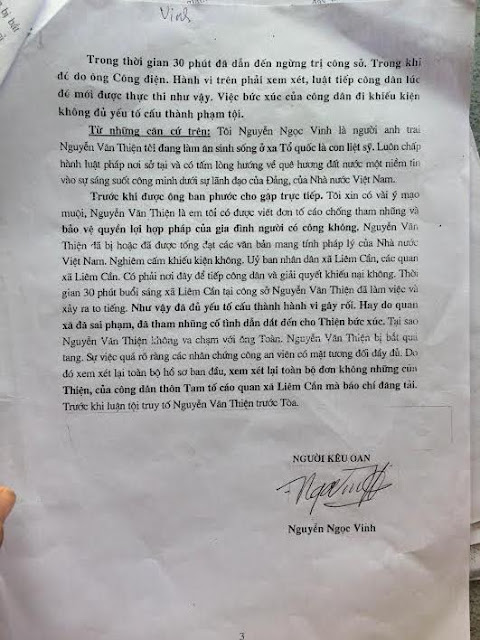 Vinh
Trong thời gian 30 phút đã dẫn đến ngừng trị công sở. Trong khi
đó do ông Công điện. Hành vi trên phải xem xét, luật tiếp công dân lúc
đó mới được thực thi như vậy. Việc bức xúc của công dân đi khiếu kiện
không đủ yếu tố cấu thành phạm tội.
Từ những căn cứ trên: Tôi Nguyễn Ngọc Vinh là người anh trai
Nguyễn Văn Thiện tôi đang làm ăn sinh sống ở xa Tổ quốc là con liệt sỹ. Luôn chấp
hành luật pháp nơi sở tại và có tấm lòng hướng về quê hương đất nước một niềm tin
vào sự sáng suốt công minh dưới sự lãnh đạo của Đảng, của Nhà nước Việt Nam.
Trước khi được ông ban phước cho gặp trực tiếp. Tôi xin có vài ý mạo
muội, Nguyễn Văn Thiện là em tôi có được viết đơn tố cáo chống tham nhũng và
bảo vệ quyền lợi hợp pháp của gia đình người có công không. Nguyễn Văn
Thiện đã bị hoặc đã được tống đạt các văn bản mang tính pháp lý của Nhà nước
Việt Nam. Nghiêm cấm khiếu kiện không. Uỷ ban nhân dân xã Liêm Cần, các quan
xã Liêm Cần. Có phải nơi đây để tiếp công dân và giải quyết khiếu nại không. Thời
gian 30 phút buổi sáng xã Liêm Cần tại công sở Nguyễn Văn Thiện đã làm việc và
xảy ra to tiếng. Như vậy đã đủ yếu tố cấu thành hành vi gây rối. Hay do quan
xã đã sai phạm, đã tham nhũng cố tình dẫn dắt đến cho Thiện bức xúc. Tại sao
Nguyễn Văn Thiện không va chạm với ông Toàn. Nguyễn Văn Thiện bị bắt quả
tang. Sự việc quá rõ ràng các nhân chứng công an viên có mặt tương đối đầy đủ. Do
đó xem xét lại toàn bộ hồ sơ ban đầu, xem xét lại toàn bộ đơn không những của
Thiện, của công dân thôn Tam tố cáo quan xã Liêm Cần mà báo chí đăng tải.
Trước khi luận tội truy tố Nguyễn Văn Thiện trước Tòa.
NGƯỜI KÊU OAN
Nguyễn Ngọc Vinh
3